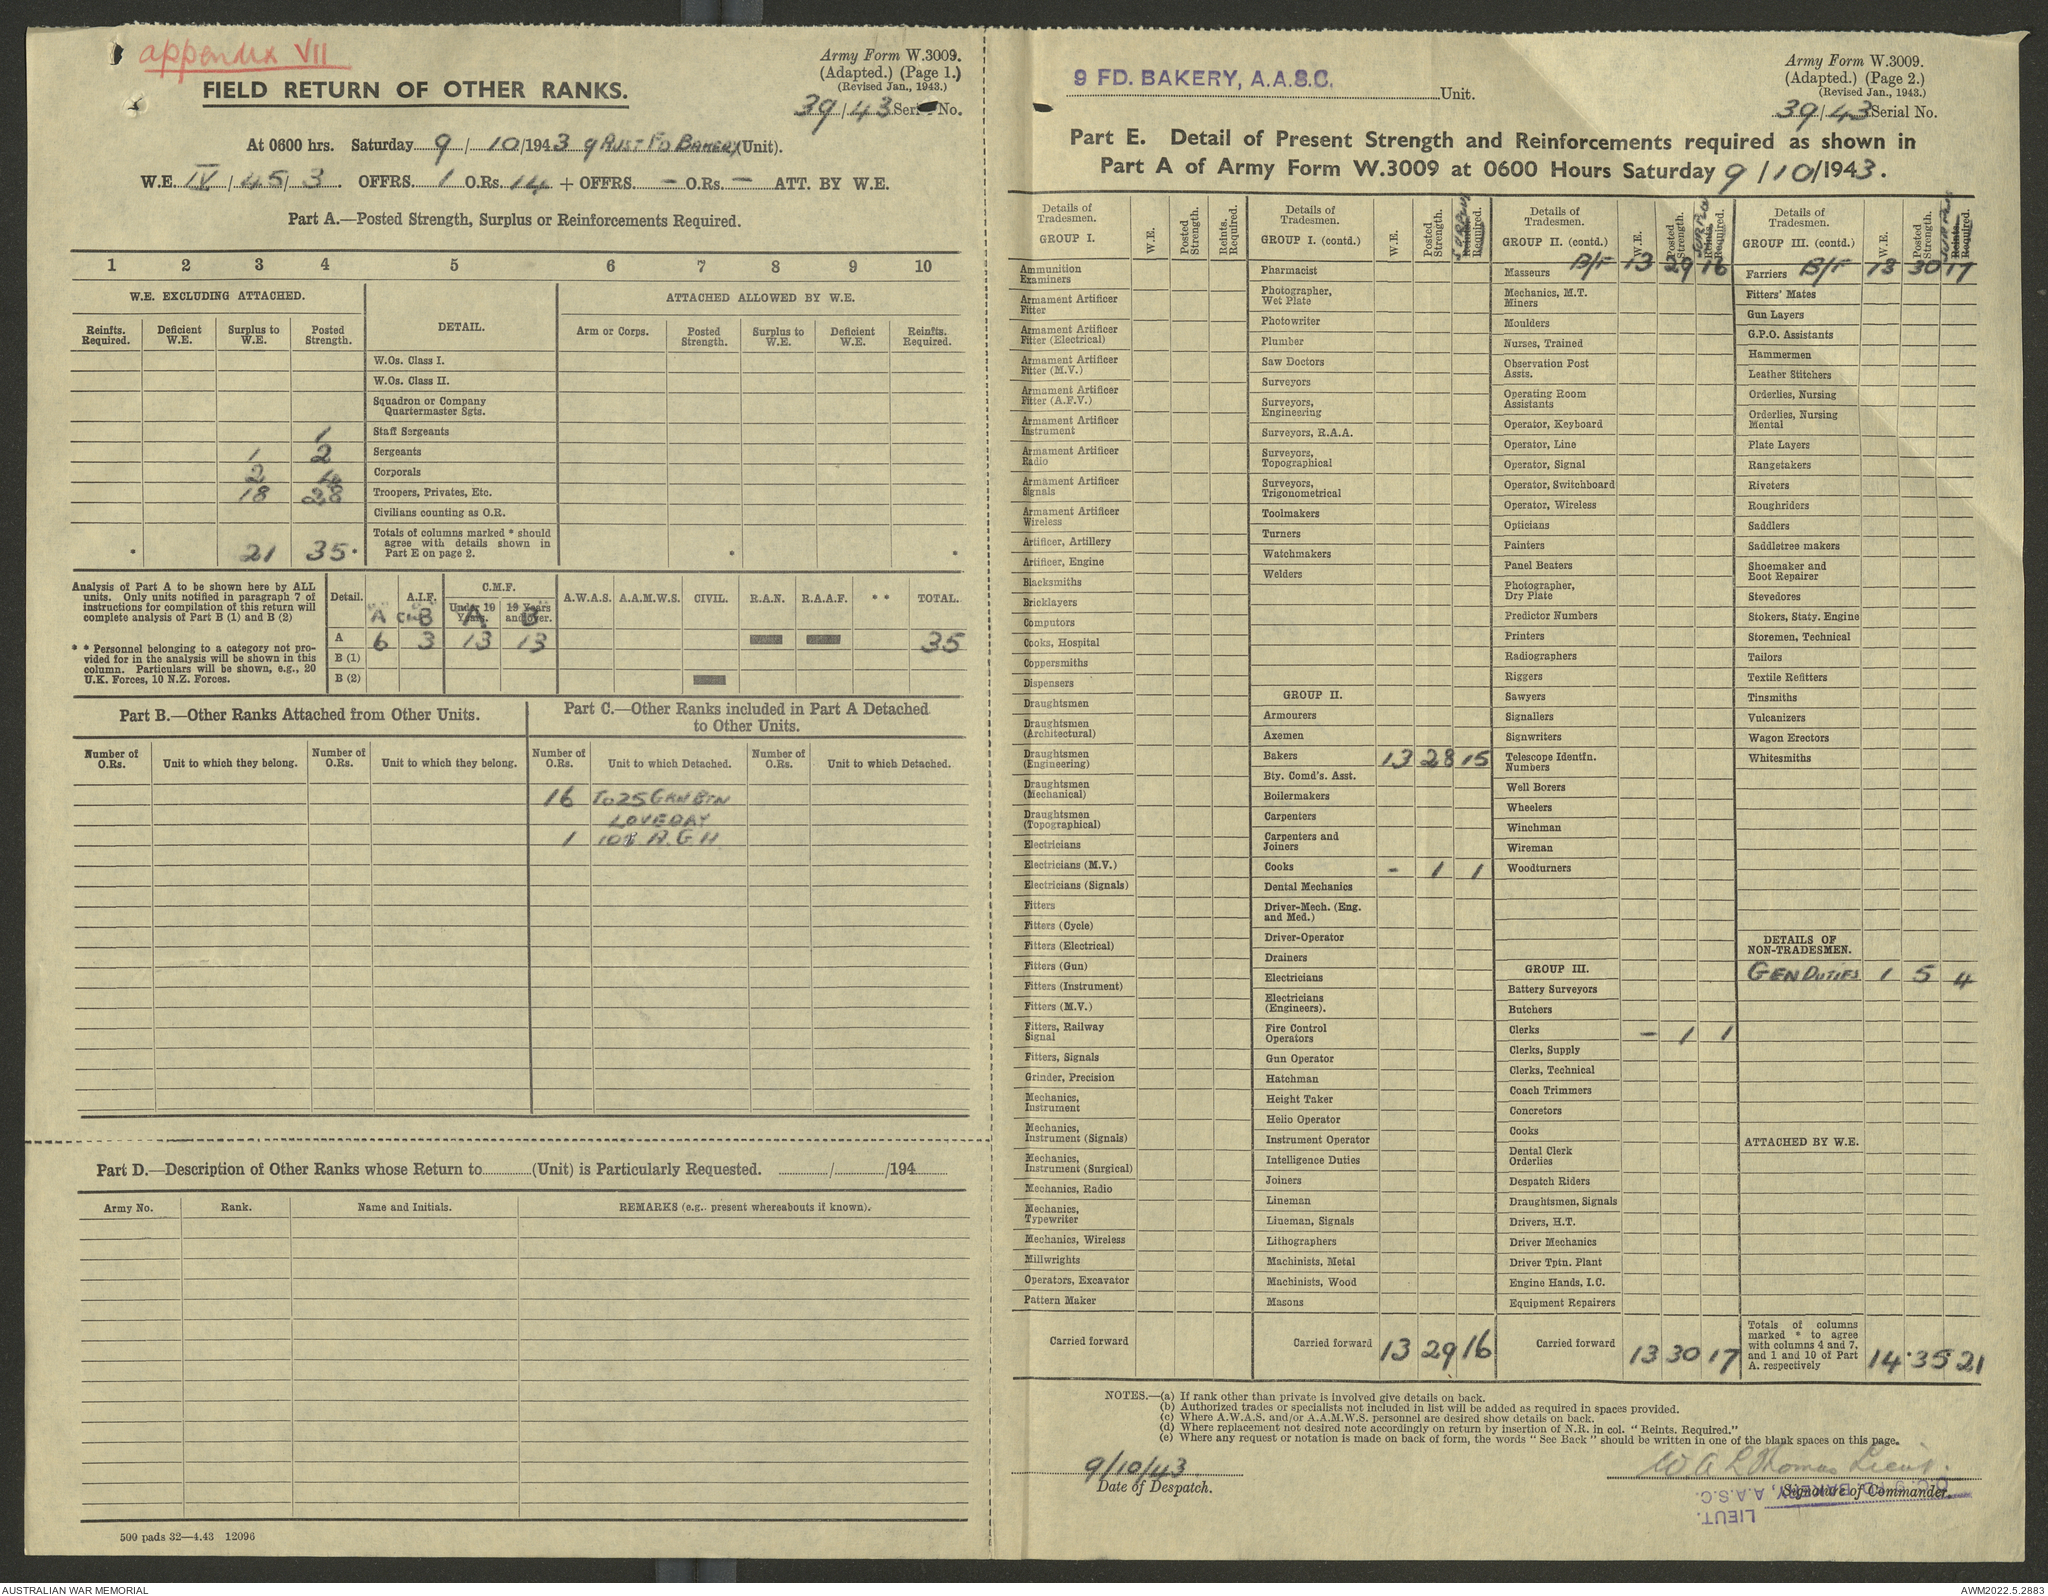 appendix VII
Army Form W.3009.
(Adapted.) (Page 1.)
(Revised Jan., 1943.)
39/43 Serial No.
FIELD RETURN OF OTHER RANKS.
At 0600 hrs. Saturday 9/10/1943 9 AUST FD BAKERY (Unit).
W.E. IV/45/3. OFFRS. 1 O.Rs. 14 + OFFRS. - O.Rs. - ATT. BY W.E.
Part A.—Posted Strength, Surplus or Reinforcements Required.
1 2 3 4 5 6 7 8 9 10
W.E. EXCLUDING ATTACHED. DETAIL. ATTACHED ALLOWED BY W.E.
Reinfts. Required. Deficient W.E. Surplus to W.E. Posted Strength. Arm or Corps. Posted Strength. Surplus to W.E. Deficient W.E. Reinfts. Required.
W.Os. Class I.
W.Os. Class II.
Squadron or Company
Quartermaster Sgts.
1 Staff Sergeants
1 2 Sergeants
2 4 Corporals
18 28 Troopers, Privates, Etc.
Civilians counting as O.R.
21 35 Totals of columns marked * should
agree with details shown in
Part E on page 2.
Analysis of Part A to be shown here by ALL
units. Only units notified in paragraph 7 of
instructions for compilation of this return will
complete analysis of Part B (1) and B (2)
* * Personnel belonging to a category not pro-
vided for in the analysis will be shown in this
column. Particulars will be shown, e.g., 20
U.K. Forces, 10 N.Z. Forces.
Detail. A.I.F. C.M.F. A.W.A.S. A.A.M.W.S. CIVIL. R.A.N. R.A.A.F. * * TOTAL.
Under 19 Years. 19 Years and over.
A B A B
A 6 3 13 13 35
B (1)
B (2)
Part B.—Other Ranks Attached from Other Units.
Number of O.Rs. Unit to which they belong. Number of O.Rs. Unit to which they belong.
Part C.—Other Ranks included in Part A Detached
to Other Units.
Number of O.Rs. Unit to which Detached. Number of O.Rs. Unit to which Detached.
16 To 25 GRN BTN
LOVEDAY
1 A.G.H
Part D.—Description of Other Ranks whose Return to (Unit) is Particularly Requested. / /194
Army No. Rank. Name and Initials. REMARKS (e.g.. present whereabouts if known).
500 pads 32—4.43 12096
9 FD. BAKERY, A.A.S.C. Unit.
Army Form W.3009.
(Adapted.) (Page 2.)
(Revised Jan., 1943.)
39/43 Serial No.
Part E. Detail of Present Strength and Reinforcements required as shown in
Part A of Army Form W.3009 at 0600 Hours Saturday 9/10/1943.
Details of Tradesmen.
GROUP I.
W.E. Posted Strength. Reints. Required.
Ammunition Examiners
Armament Artificer Fitter
Armament Artificer Fitter (Electrical)
Armament Artificer Fitter (M.V.)
Armament Artificer Fitter (A.F.V.)
Armament Artificer Instrument
Armament Artificer Radio
Armament Artificer Signals
Armament Artificer Wireless
Artificer, Artillery
Artificer, Engine
Blacksmiths
Bricklayers
Computors
Cooks, Hospital
Coppersmiths
Dispensers
Draughtsmen
Draughtsmen (Architectural)
Draughtsmen (Engineering)
Draughtsmen (Mechanical)
Draughtsmen (Topographical)
Electricians
Electricians (M.V.)
Electricians (Signals)
Fitters
Fitters (Cycle)
Fitters (Electrical)
Fitters (Gun)
Fitters (Instrument)
Fitters (M.V.)
Fitters, Railway Signal
Fitters, Signals
Grinder, Precision
Mechanics, Instrument
Mechanics, Instrument (Signals)
Mechanics, Instrument (Surgical)
Mechanics, Radio
Mechanics, Typewriter
Mechanics, Wireless
Millwrights
Operators, Excavator
Pattern Maker
Carried forward
Details of Tradesmen.
GROUP I. (contd.)
W.E. Posted Strength. SURPLUS Reints. Required.
Pharmacist
Photographer, Wet Plate
Photowriter
Plumber
Saw Doctors
Surveyors
Surveyors, Engineering
Surveyors, R.A.A.
Surveyors, Topographical
Surveyors, Trigonometrical
Toolmakers
Turners
Watchmakers
Welders
GROUP II.
Armourers
Axemen
Bakers 13 28 15
Bty. Comd's. Asst.
Boilermakers
Carpenters
Carpenters and Joiners
Cooks - 1 1
Dental Mechanics
Driver-Mech. (Eng. and Med.)
Driver-Operator
Drainers
Electricians
Electricians (Engineers).
Fire Control Operators
Gun Operator
Hatchman
Height Taker
Helio Operator
Instrument Operator
Intelligence Duties
Joiners
Lineman
Lineman, Signals
Lithographers
Machinists, Metal
Machinists, Wood
Masons
Carried forward 13 29 16
Details of Tradesmen.
GROUP II. (contd.)
W.E. Posted Strength. SURPLUS Reints. Required.
Masseurs B/F 13 29 16
Mechanics, M.T.
Miners
Moulders
Nurses, Trained
Observation Post Assts.
Operating Room Assistants
Operator, Keyboard
Operator, Line
Operator, Signal
Operator, Switchboard
Operator, Wireless
Opticians
Painters
Panel Beaters
Photographer, Dry Plate
Predictor Numbers
Printers
Radiographers
Riggers
Sawyers
Signallers
Signwriters
Telescope Identfn. Numbers
Well Borers
Wheelers
Winchman
Wireman
Woodturners
GROUP III.
Battery Surveyors
Butchers
Clerks - 1 1
Clerks, Supply
Clerks, Technical
Coach Trimmers
Concretors
Cooks
Dental Clerk Orderlies
Despatch Riders
Draughtsmen, Signals
Drivers, H.T.
Driver Mechanics
Driver Tptn. Plant
Engine Hands, I.C.
Equipment Repairers
Carried forward 13 30 17
Details of Tradesmen.
GROUP III. (contd.)
W.E. Posted Strength. SURPLUS Reints. Required.
Farriers B/F 13 30 17
Fitters' Mates
Gun Layers
G.P.O. Assistants
Hammermen
Leather Stitchers
Orderlies, Nursing
Orderlies, Nursing Mental
Plate Layers
Rangetakers
Riveters
Roughriders
Saddlers
Saddletree makers
Shoemaker and Boot Repairer
Stevedores
Stokers, Staty. Engine
Storemen, Technical
Tailors
Textile Refitters
Tinsmiths
Vulcanizers
Wagon Erectors
Whitesmiths
DETAILS OF
NON-TRADESMEN.
GEN DUTIES 1 5 4
ATTACHED BY W.E.
Totals of columns
marked * to agree
with columns 4 and 7,
and 1 and 10 of Part
A. respectively 14 35 21
NOTES.—(a) If rank other than private is involved give details on back.
(b) Authorized trades or specialists not included in list will be added as required in spaces provided.
(c) Where A.W.A.S. and/or A.A.M.W.S. personnel are desired show details on back.
(d) Where replacement not desired note accordingly on return by insertion of N.R. in col. "Reints. Required."
(e) Where any request or notation is made on back of form, the words "See Back" should be written in one of the blank spaces on this page.
9/10/43
Date of Despatch.
W A L Thomas Lieut.
Signature of Commander.
LIEUT.
O.C. 9 FD. BAKERY, A.A.S.C.
AUSTRALIAN WAR MEMORIAL
AWM2022.5.2883